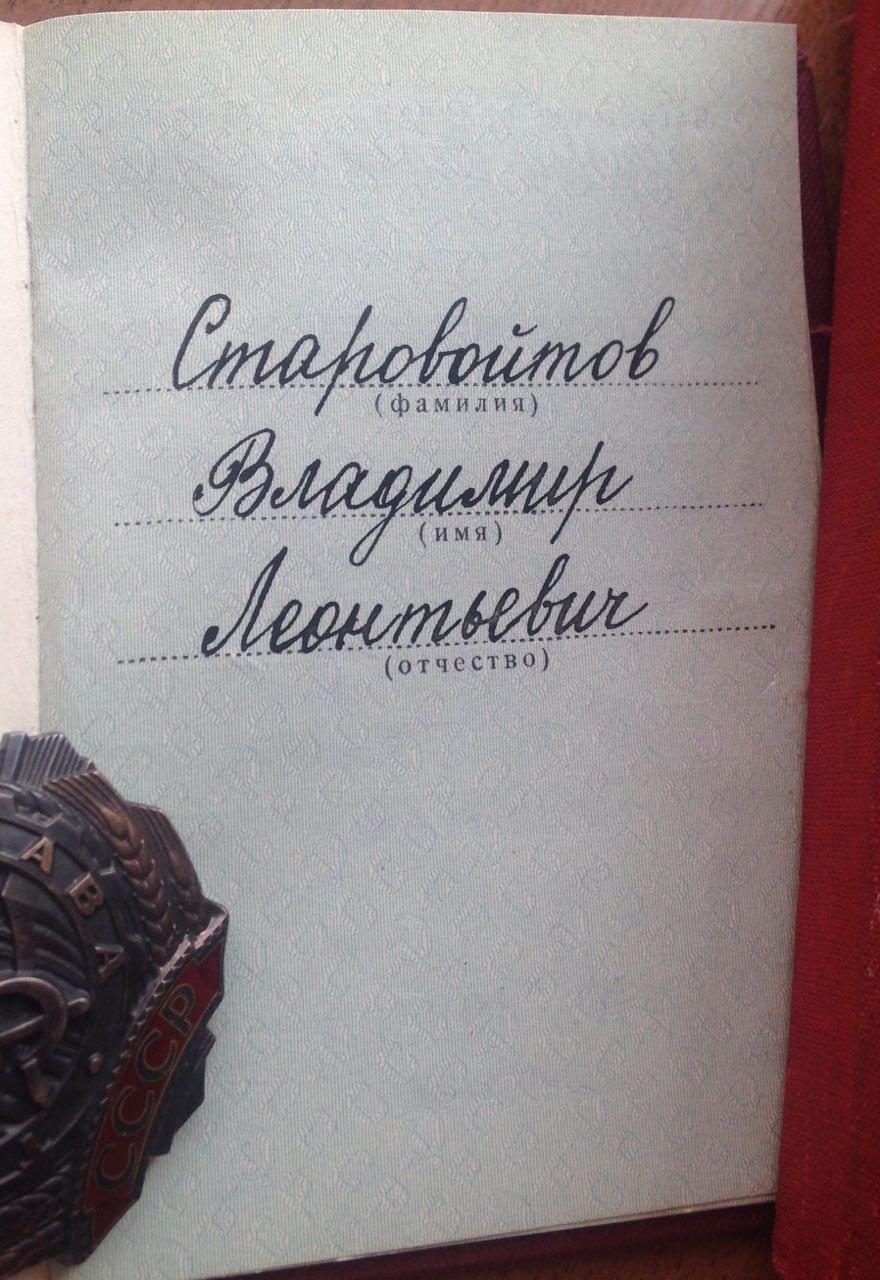 Старовойтов
(фамилия)
Владимир
(имя)
Леонтьевич
(отчество)
АВА
СССР